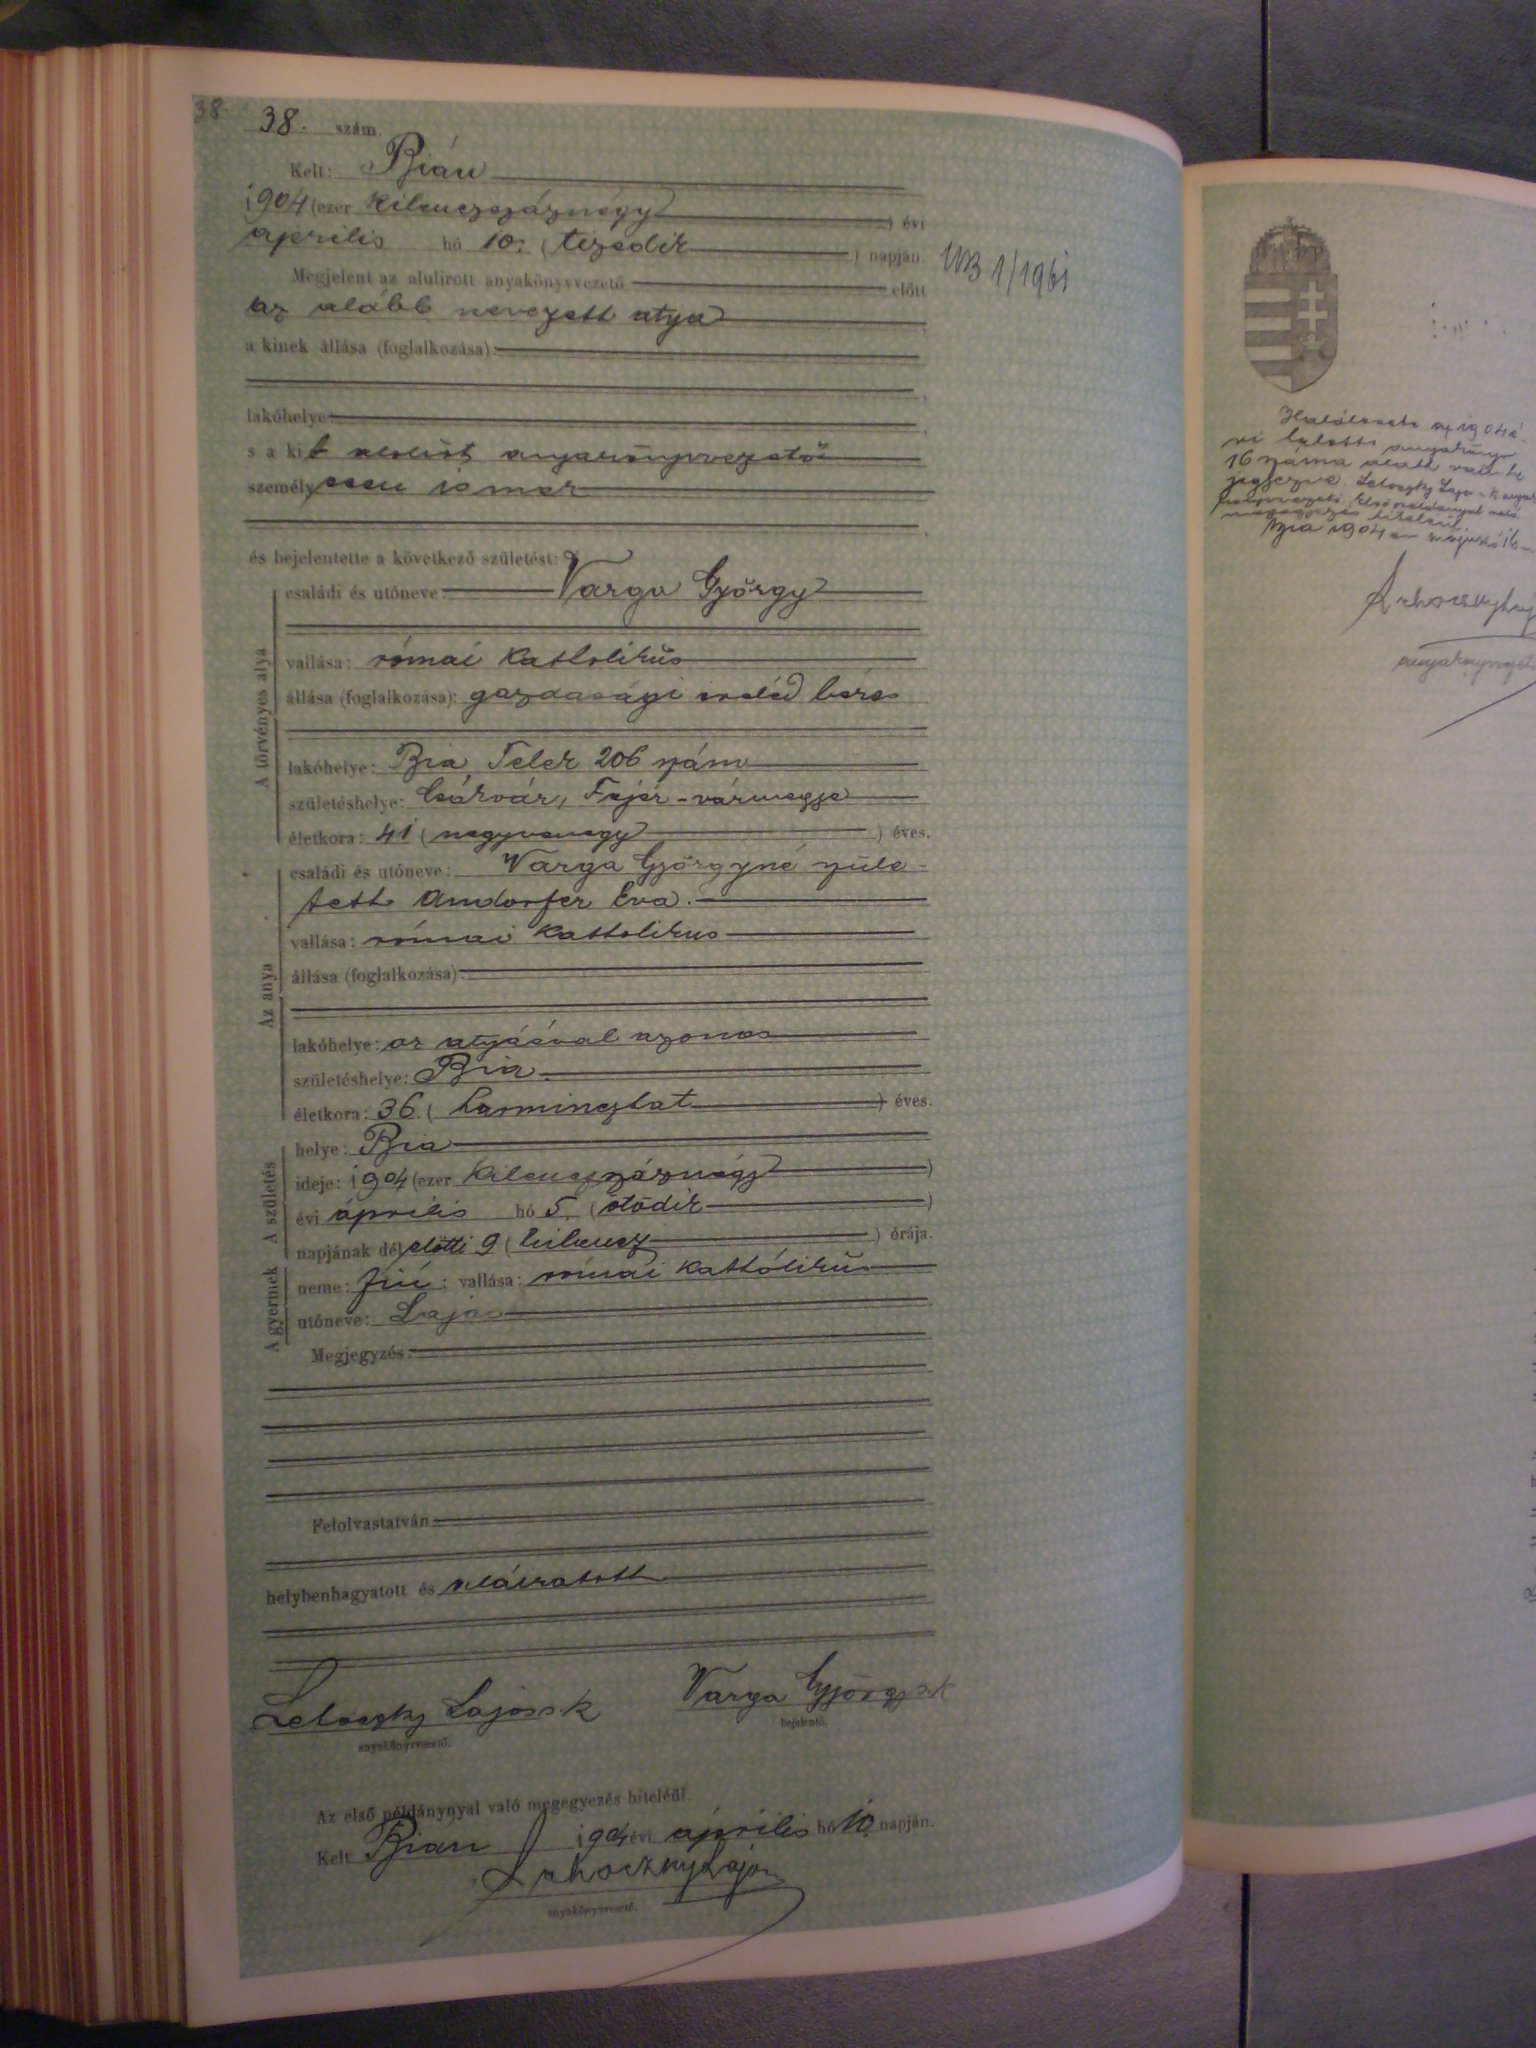 38.
38. szám.
Kelt: Bián
1904 (ezer kilenczszáznégy) évi
április hó 10. (tizedik) napján.
Megjelent az alulirott anyakönyvvezető előtt
az alább nevezett atya
a kinek állása (foglalkozása):
lakóhelye
s a kit alulirt anyakönyvvezető
személyesen ismer
és bejelentette a következő születést:
A törvényes atya
családi és utóneve: Varga György
vallása: római katholikus
állása (foglalkozása): gazdasági cseléd béres
lakóhelye: Bia Telek 206 szám
születéshelye: Csákvár, Fejér-vármegye
életkora: 41 (negyvenegy) éves.
Az anya
családi és utóneve: Varga Györgyné szüle-
tett Amdorfer Éva.
vallása: római katholikus
állása (foglalkozása):
lakóhelye: az atyáéval azonos
születéshelye: Bia.
életkora: 36. (harminczhat) éves.
A születés
helye: Bia
ideje: 1904 (ezer kilenczszáznégy)
évi április hó 5. (ötödik)
napjának délelőtti 9 (kilencz) órája.
A gyermek
neme: fiú; vallása: római katholikus
utóneve: Lajos
Megjegyzés:
Felolvastatván
helybenhagyatott és aláiratott
Lajos Varga György
anyakönyvvezető. bejelentő.
Az első példánynyal való megegyezés hiteléül.
Kelt Bián 1904 évi április hó 10 napján.
Lajos
anyakönyvvezető.
1/1961
1904 é-
vi halotti anyakönyv
16 száma alatt van be
jegyezve. Lajos
Bia 1904 én május hó 16-